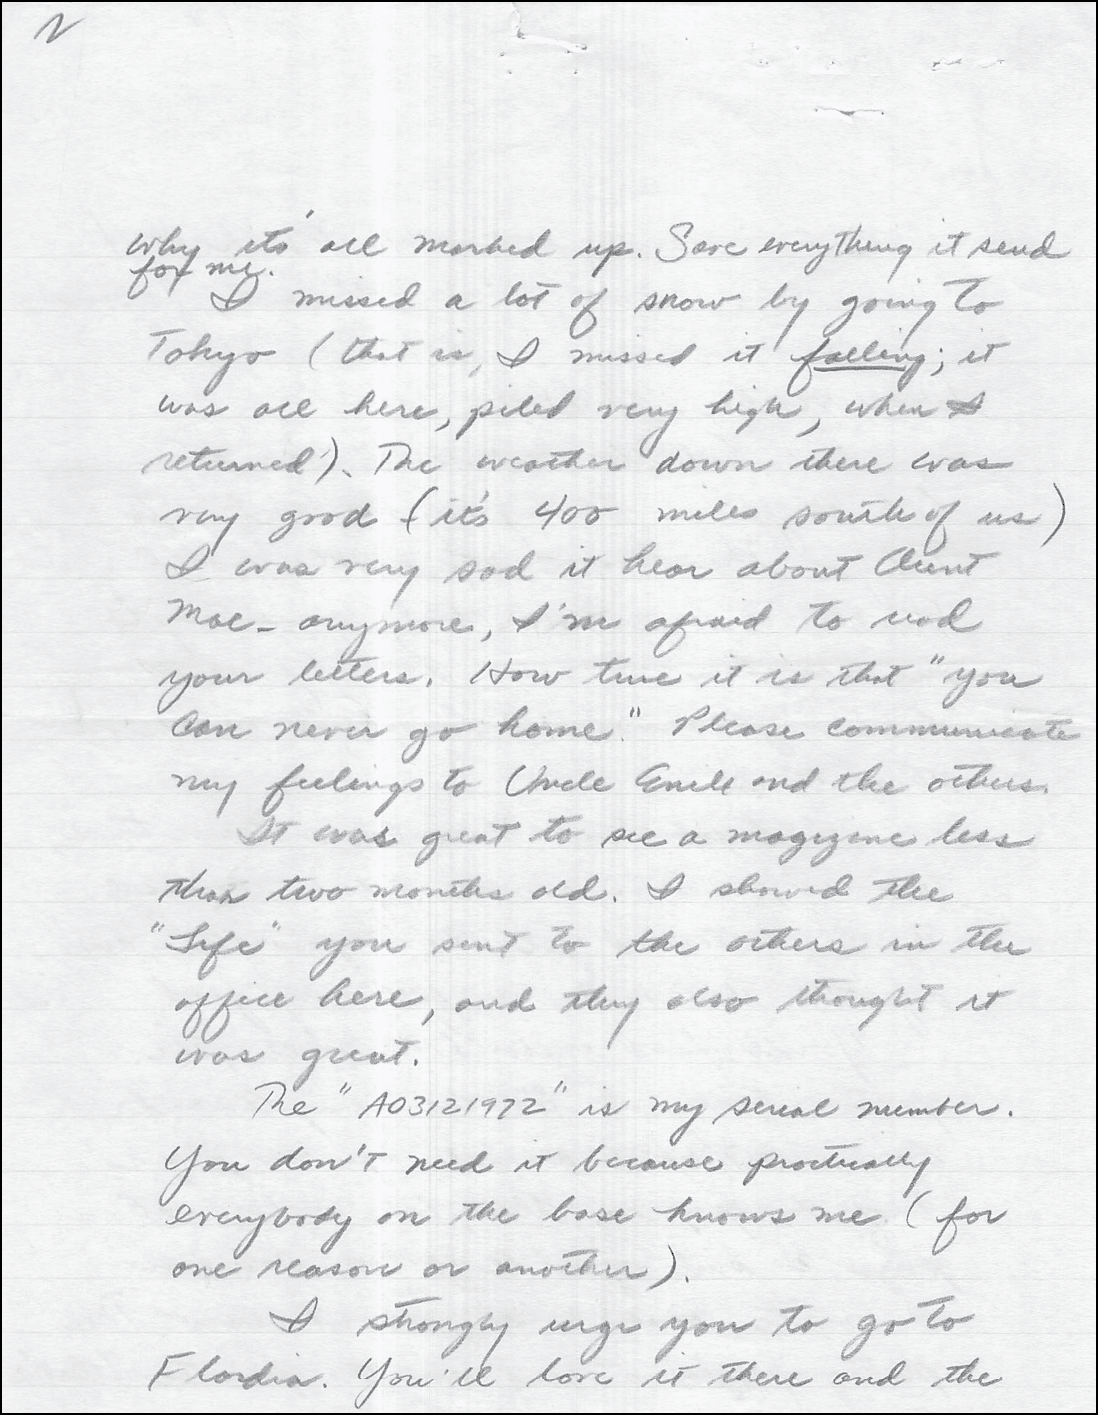 2
why it's all marked up. Save everything it send
for me.
I missed a lot of snow by going to
Tokyo (that is, I missed it falling; it
was all here, piled very high, when I
returned). The weather down there was
very good (it's 400 miles south of us)
I was very sad it hear about Aunt
Mae - anymore, I'm afraid to read
your letters. How true it is that "you
can never go home." Please communicate
my feelings to Uncle Emile and the others.
It was great to see a magizine less
than two months old. I showed the
"Life" you sent to the others in the
office here, and they also thought it
was great.
The "A03121972" is my serial number.
You don't need it because practically
everybody on the base knows me (for
one reason or another).
I strongly urge you to go to
Flordia. You'll love it there and the